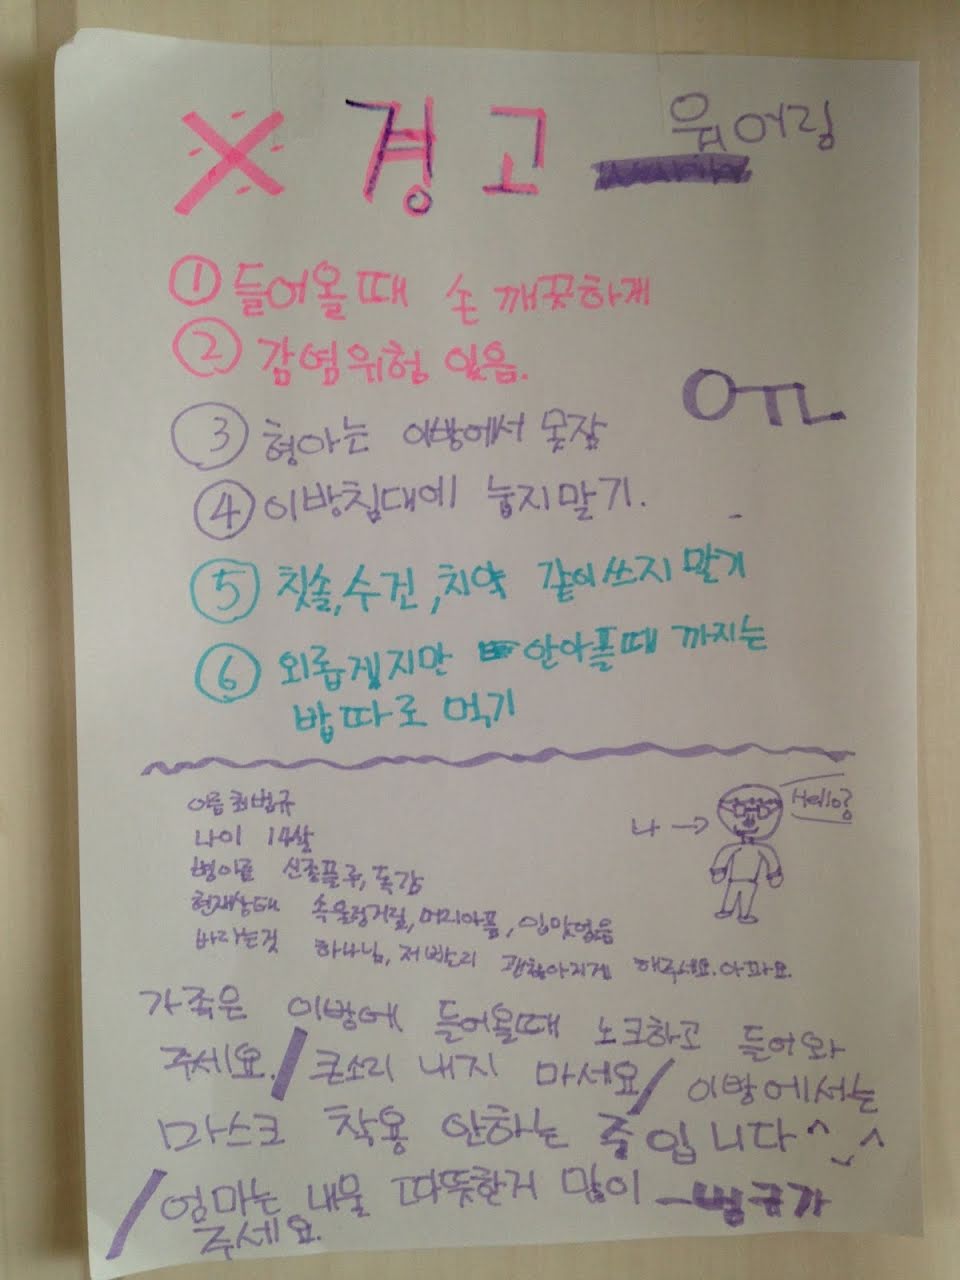 ※ 경고
① 들어올때 손 깨끗하게
② 감염위험 있음.
OTL
③ 형아는 이방에서 못잠
④ 이방침대에 눕지말기.
⑤ 칫솔,수건,치약 같이쓰지 말기
⑥ 외롭겠지만 안아플때 까지는
밥따로 먹기
이름 최범규
나이 14살
병이름 신종플루, 독감
현재상태 속울렁거림, 머리아픔, 입맛없음
바라는것 하나님, 저 빨리 괜찮아지게 해주세요. 아파요.
나 →
Hello?
가족은 이방에 들어올때 노크하고 들어와
주세요. / 큰소리 내지 마세요 / 이방에서는
마스크 착용 안하는 중입니다 ^_^
/ 엄마는 내물 따뜻한거 많이 -범규가
주세요.